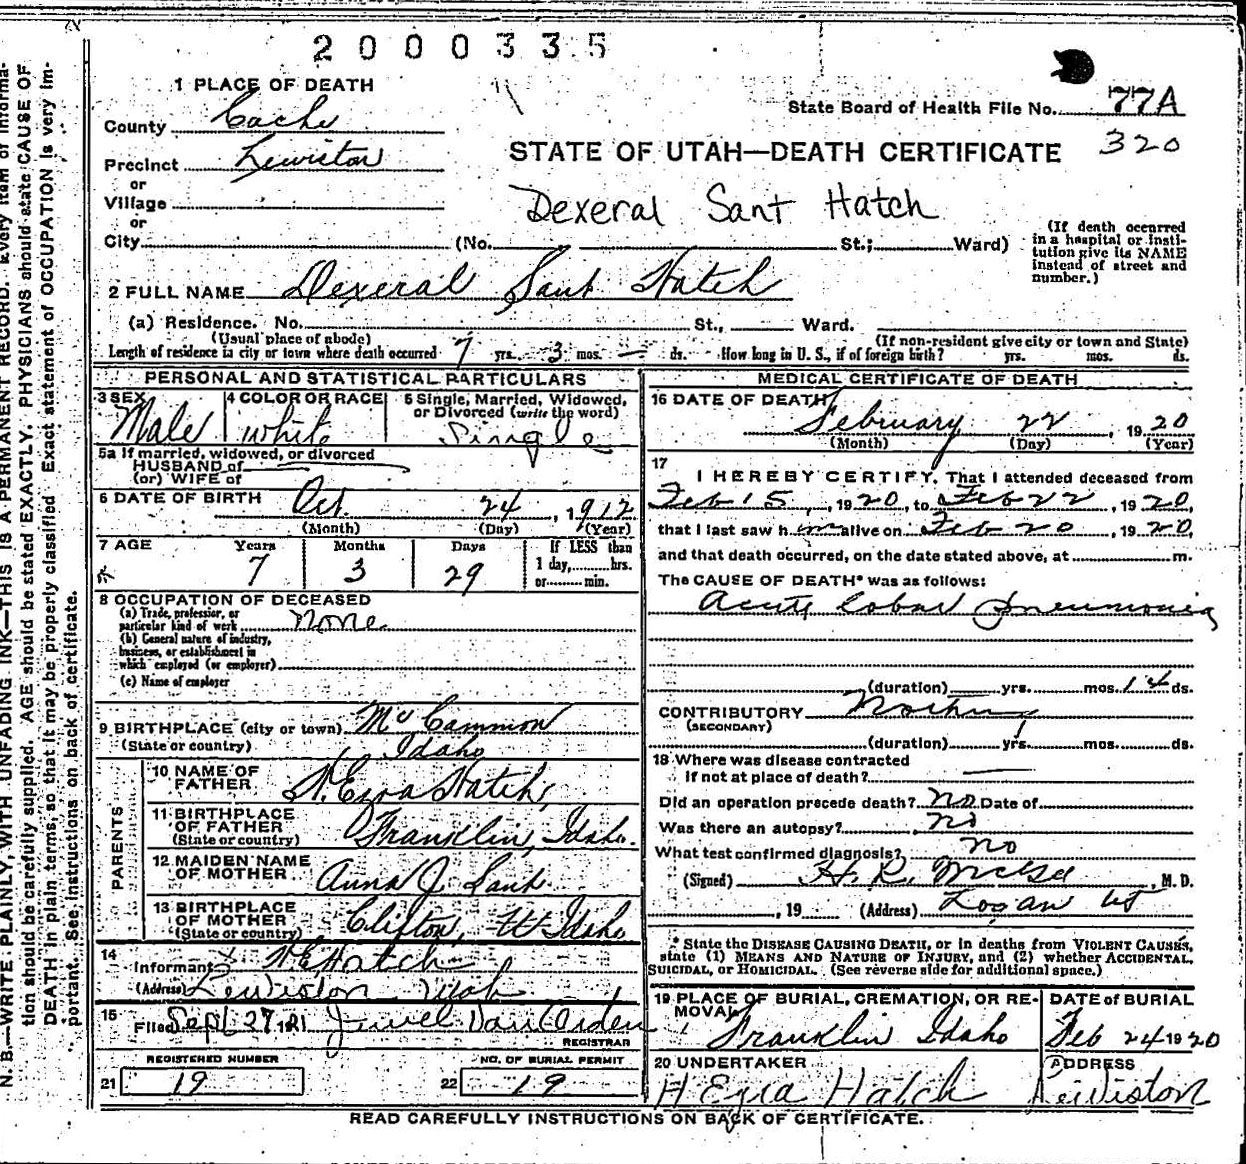 2000335
1 PLACE OF DEATH
State Board of Health File No. 77A
320
County Cache
STATE OF UTAH—DEATH CERTIFICATE
Precinct Lewiston
or
Village
Dexeral Sant Hatch
or
City (No. St.; Ward)
(If death occurred in a hospital or insti-
tution give its NAME
instead of street and
number.)
2 FULL NAME Dexeral Sant Hatch
(a) Residence. No. St., Ward.
(Usual place of abode) (If non-resident give city or town and State)
Length of residence in city or town where death occurred 7 yrs. 3 mos. — ds. How long in U. S., if of foreign birth? yrs. mos. ds.
PERSONAL AND STATISTICAL PARTICULARS
3 SEX Male
4 COLOR OR RACE white
5 Single, Married, Widowed,
or Divorced (write the word)
Single
5a If married, widowed, or divorced
HUSBAND of
(or) WIFE of
6 DATE OF BIRTH Oct. 24, 1912
(Month) (Day) (Year)
7 AGE Years Months Days If LESS than
1 day, hrs.
or min.
7 3 29
8 OCCUPATION OF DECEASED
(a) Trade, profession, or
particular kind of work none
(b) General nature of industry,
business, or establishment in
which employed (or employer)
(c) Name of employer
9 BIRTHPLACE (city or town) McCammon
(State or country) Idaho
PARENTS
10 NAME OF
FATHER H. Ezra Hatch,
11 BIRTHPLACE
OF FATHER
(State or country) Franklin, Idaho.
12 MAIDEN NAME
OF MOTHER Anna J. Sant.
13 BIRTHPLACE
OF MOTHER
(State or country) Clifton, Idaho
14
Informant H E Hatch
(Address) Lewiston Utah
15
Filed Sept 27, 1921 Jewel Van Orden
REGISTRAR
REGISTERED NUMBER NO. OF BURIAL PERMIT
21 19 22 19
MEDICAL CERTIFICATE OF DEATH
16 DATE OF DEATH
February 22, 1920
(Month) (Day) (Year)
17
I HEREBY CERTIFY, That I attended deceased from
Feb 15, 1920, to Feb 22, 1920,
that I last saw him alive on Feb 20, 1920,
and that death occurred, on the date stated above, at m.
The CAUSE OF DEATH* was as follows:
Acute Lobar Pneumonia
(duration) yrs. mos. 14 ds.
CONTRIBUTORY Nothing
(SECONDARY)
(duration) yrs. mos. ds.
18 Where was disease contracted
if not at place of death?
Did an operation precede death? no Date of
Was there an autopsy? no
What test confirmed diagnosis? no
(Signed) H. R. McGee, M. D.
, 19 (Address) Logan Ut
* State the DISEASE CAUSING DEATH, or in deaths from VIOLENT CAUSES,
state (1) MEANS AND NATURE OF INJURY, and (2) whether ACCIDENTAL,
SUICIDAL, or HOMICIDAL. (See reverse side for additional space.)
19 PLACE OF BURIAL, CREMATION, OR RE-
MOVAL
Franklin Idaho
DATE of BURIAL
Feb 24 1920
20 UNDERTAKER
H Ezra Hatch
ADDRESS
Lewiston
READ CAREFULLY INSTRUCTIONS ON BACK OF CERTIFICATE.
N. B.—WRITE PLAINLY, WITH UNFADING INK—THIS IS A PERMANENT RECORD. Every item of informa-
tion should be carefully supplied. AGE should be stated EXACTLY. PHYSICIANS should state CAUSE OF
DEATH in plain terms, so that it may be properly classified. Exact statement of OCCUPATION is very im-
portant. See instructions on back of certificate.